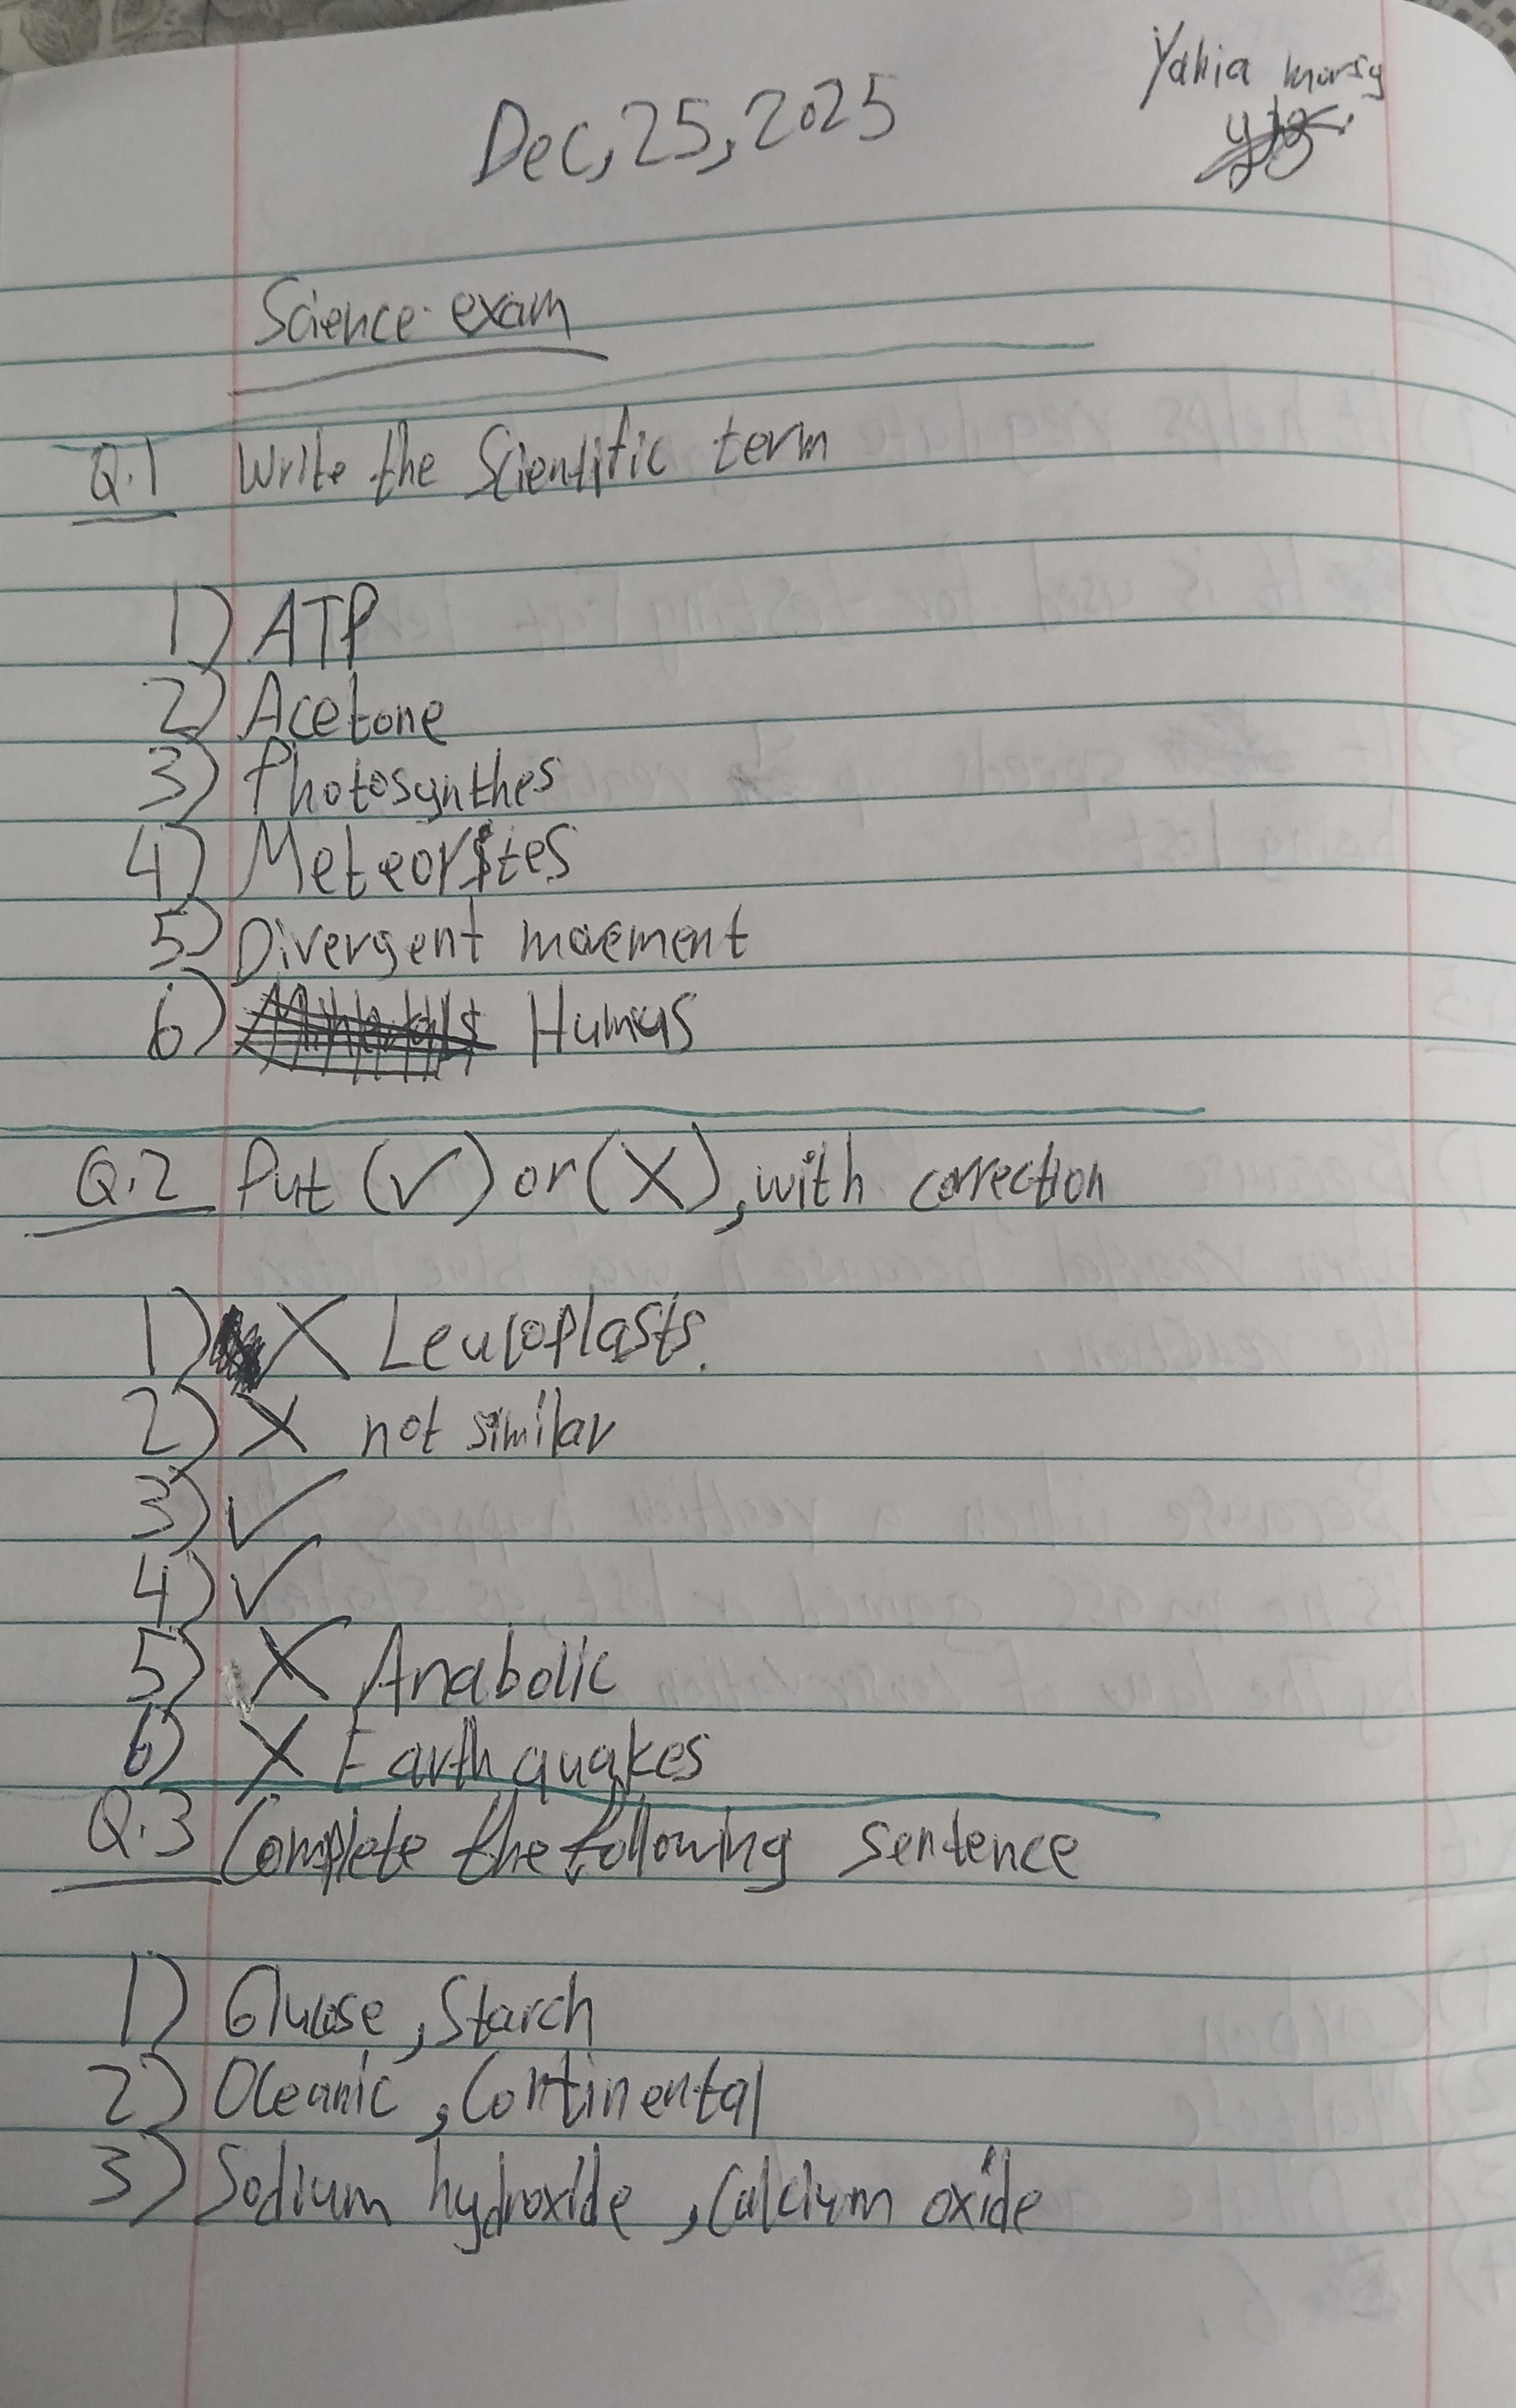 Yahia morsy
Dec, 25, 2025
Science exam
Q.1 Write the Scientific term
1) ATP
2) Acetone
3) Photosynthes
4) Meteorites
5) Divergent movement
6) Humus
Q.2 Put (✓) or (X), with correction
1) X Leucoplasts.
2) X not similar
3) ✓
4) ✓
5) X Anabolic
6) X Earthquakes
Q.3 Complete the following sentence
1) Glucose, Starch
2) Oceanic, Continental
3) Sodium hydroxide, Calcium oxide